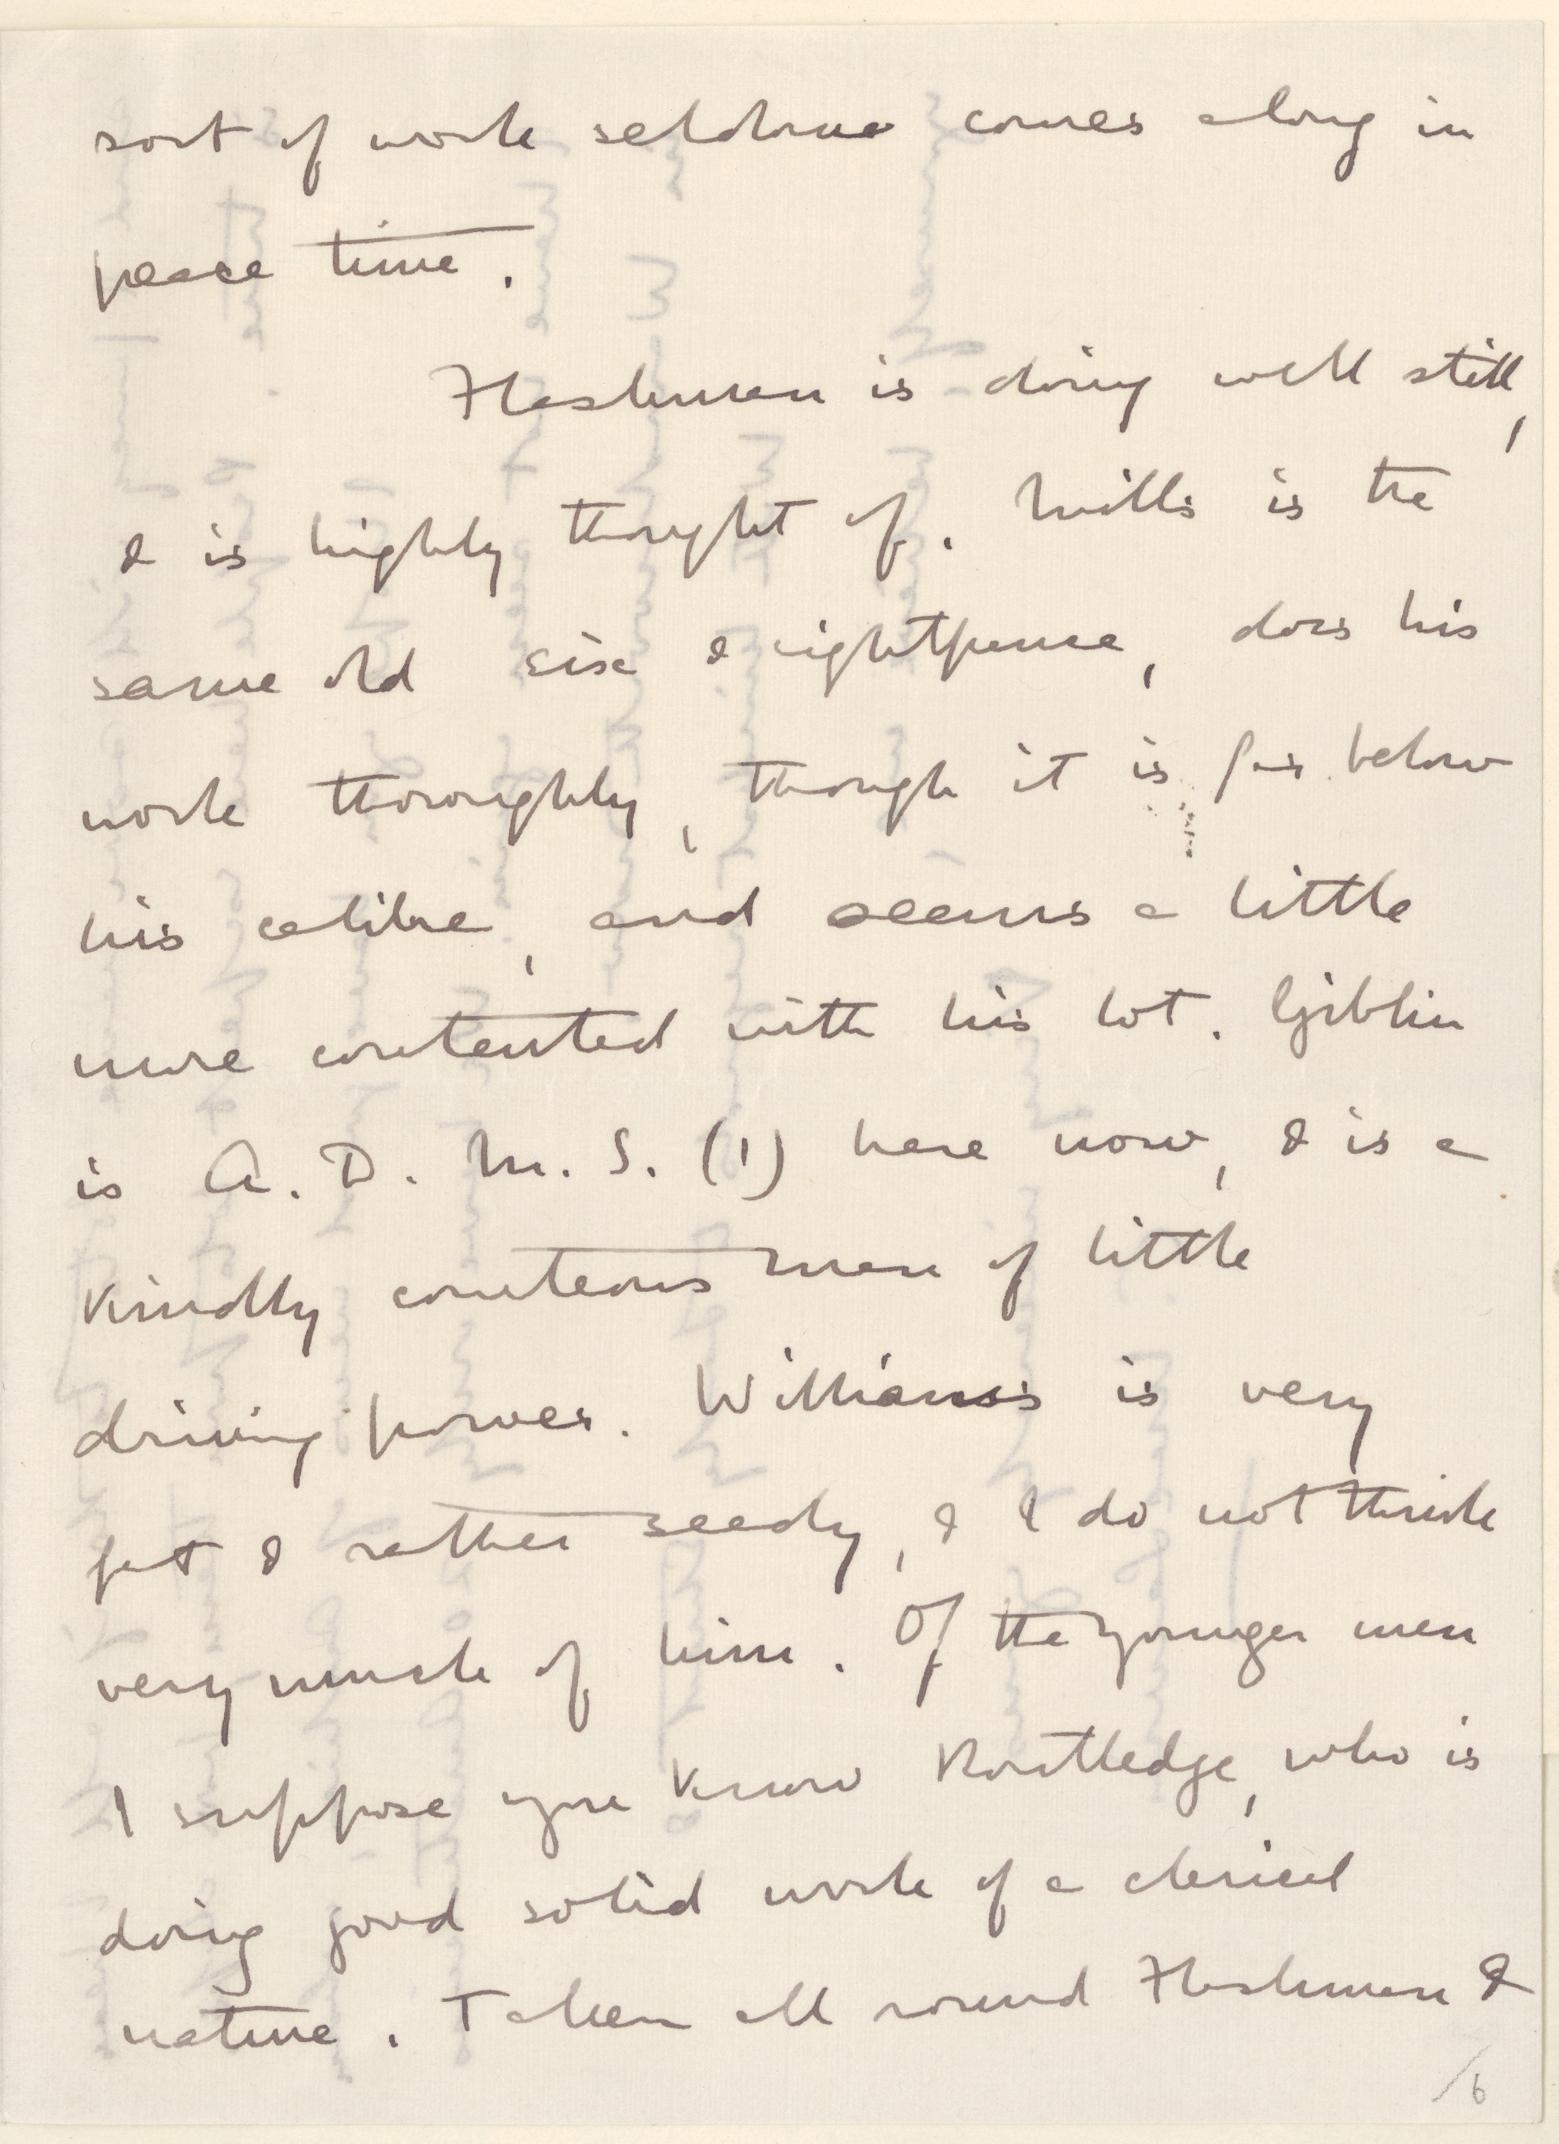 sort of work seldome comes along in
peace time.
Flashman is doing well still,
& is highly thought of. Mills is the
same old six & eightpence, does his
work thoroughly, though it is far below
his calibre, and seems a little
more contented with his lot. Giblin
is A.D.M.S. (1) here now, & is a
kindly courteous man of little
driving power. Williams is very
fat & rather seedy, & I do not think
very much of him. Of the younger men
I suppose you know Routledge, who is
doing good solid work of a clerical
nature. Taken all round Flashman &
/6